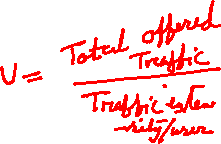 U = Total offered
Traffic
Traffic inten
-sity/user